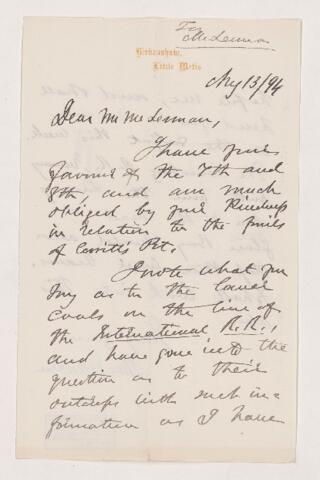 To
McLennan
Birkenshaw,
Little Metis
Aug 13/94
Dear Mr McLennan,
I have your
favours of the 7th and
8th, and am much
obliged by your kindness
in relation to the
of Pt.
I note what you
say as to the
coals on the line of
the International R.R.,
and have gone into the
question as to their
outcrops with such in=
formation as I have